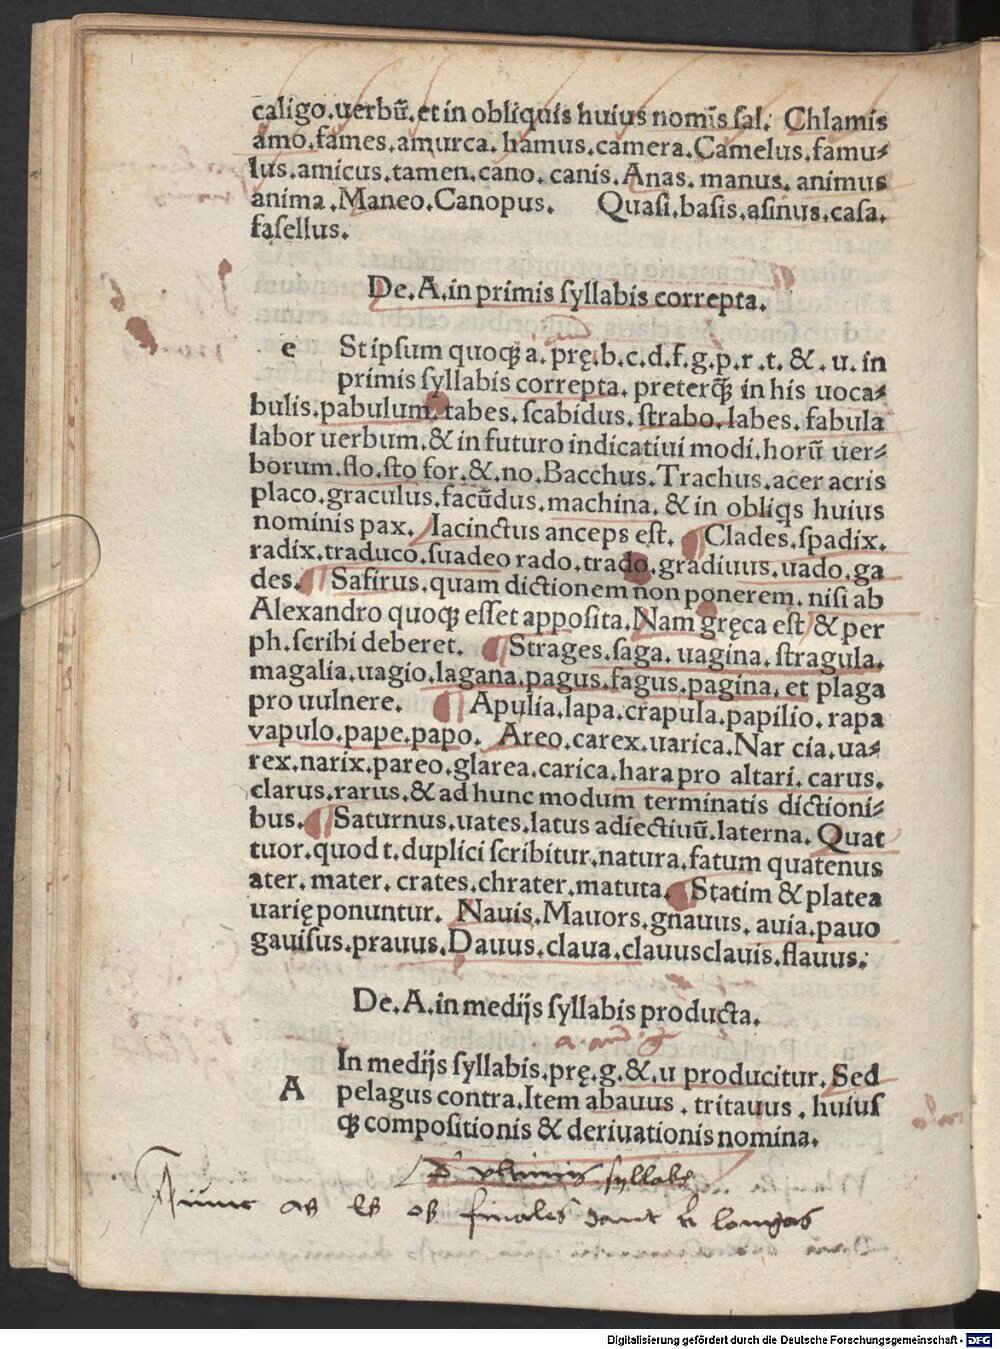 caligo.uerbū.et in obliquis huius nomīs ſal. Chlamis
amo.fames.amurca.hamus.camera.Camelus.famu⸗
lus.amicus.tamen.cano.canis.Anas.manus.animus
anima.Maneo.Canopus. Quaſi.baſis.aſinus.caſa.
faſellus.
De.A.in primis ſyllabis correpta.
e Stipſum quoqꝫ a.prę.b.c.d.f.g.p.r.t.&.u.in
primis ſyllabis correpta.preterq̄ꝫ in his uoca⸗
bulis.pabulum.tabes.ſcabidus.ſtrabo.labes.fabula
labor uerbum.& in futuro indicatiui modi.horū uer⸗
borum.flo.ſto for.&.no.Bacchus.Trachus.acer acris
placo.graculus.facūdus.machina.& in obliqs huius
nominis pax. Iacinctus anceps eſt. Clades.ſpadix.
radix.traduco.ſuadeo rado.trado.gradiuus.uado.ga
des. Safirus.quam dictionem non ponerem.niſi ab
Alexandro quoqꝫ eſſet appoſita.Nam gręca eſt & per
ph.ſcribi deberet. Strages.ſaga.uagina.ſtragula.
magalia.uagio.lagana.pagus.fagus.pagina.et plaga
pro uulnere. Apulia.lapa.crapula.papilio.rapa
vapulo.pape.papo. Areo.carex.uarica.Nar cia.ua⸗
rex.narix.pareo.glarea.carica.hara pro altari.carus.
clarus.rarus.& ad hunc modum terminatis dictioni⸗
bus. Saturnus.uates.latus adiectiuū.laterna.Quat
tuor.quod t.duplici ſcribitur.natura.fatum quatenus
ater.mater.crates.chrater.matuta. Statim & platea
uarię ponuntur. Nauis.Mauors.gnauus.auia.pauo
gauiſus.prauus.Dauus.claua.clauusclauis.flauus.
De.A.in medijs ſyllabis producta.
a. and g
A In medijs ſyllabis.prę.g.&.u producitur.Sed
pelagus contra.Item abauus.tritauus.huiuſ
qꝫ compoſitionis & deriuationis nomina.
ſyllabis
as es os finales longas
Digitalisierung gefördert durch die Deutsche Forschungsgemeinschaft - DFG